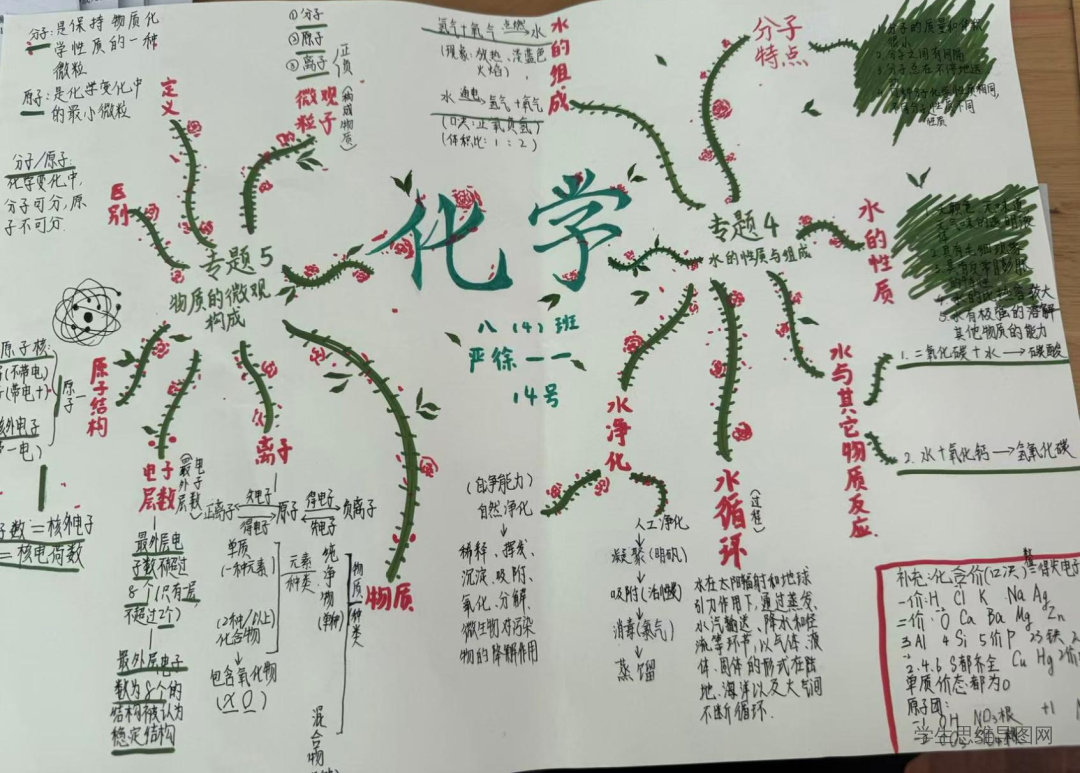 化学
八（4）班
严徐一一
14号
专题5
物质的微观
构成
定义
分子:是保持物质化
学性质的一种
微粒
原子:是化学变化中
的最小微粒
区别
分子/原子:
化学变化中,
分子可分,原
子不可分.
微观
粒子
(构成物质)
①分子
②原子
③离子
正
负
原子结构
原子
原子核:
(不带电)
(带电+)
核外电子
子数=核外电子
=核电荷数
电子
层数
(最外层电子数)
最外层电
子数不超过
8个(只有一层,
不超过2个)
最外层电子
数为8个的
结构被认为
稳定结构
离子
正离子
失电子
得电子
原子
得电子
失电子
负离子
物质
物质种类
纯净物
元素
种类
单质
(一种元素)
(2种/以上)
化合物
包含氧化物
(X O)
混合物
专题4
水的性质与组成
水的组成
氢气+氧气 点燃→ 水
(现象:放热,淡蓝色
火焰)
水 通电→ 氢气+氧气
(口诀:正氧负氢)
(体积比:1:2)
分子
特点
1.分子的质量和体积
很小
2.分子之间有间隔
3.分子总在不停地运
性质
水的性质
5.水有极强的溶解
其他物质的能力
水与其它物质反应
1.二氧化碳+水→碳酸
2.水+氧化钙→氢氧化碳
水净化
(自净能力)
自然净化
稀释、挥发、
沉淀、吸附、
氧化、分解、
微生物对污染
物的降解作用
人工净化
凝聚(明矾)
吸附(活性炭)
消毒(氯气)
蒸馏
水循环
(过程)
水在太阳辐射和地球
引力作用下,通过蒸发、
水汽输送、降水和径
流等环节,以气体、液
体、固体的形式在陆
地、海洋以及大气间
不断循环.
补充:化合价(口诀)
一价:H Cl K Na Ag
二价:O Ca Ba Mg Zn
3Al 4Si 5价P 23铁
2.4.6 S都齐全 Cu Hg
单质价态都为0
原子团:
-1 OH NO₃根 +1
学生思维导图网